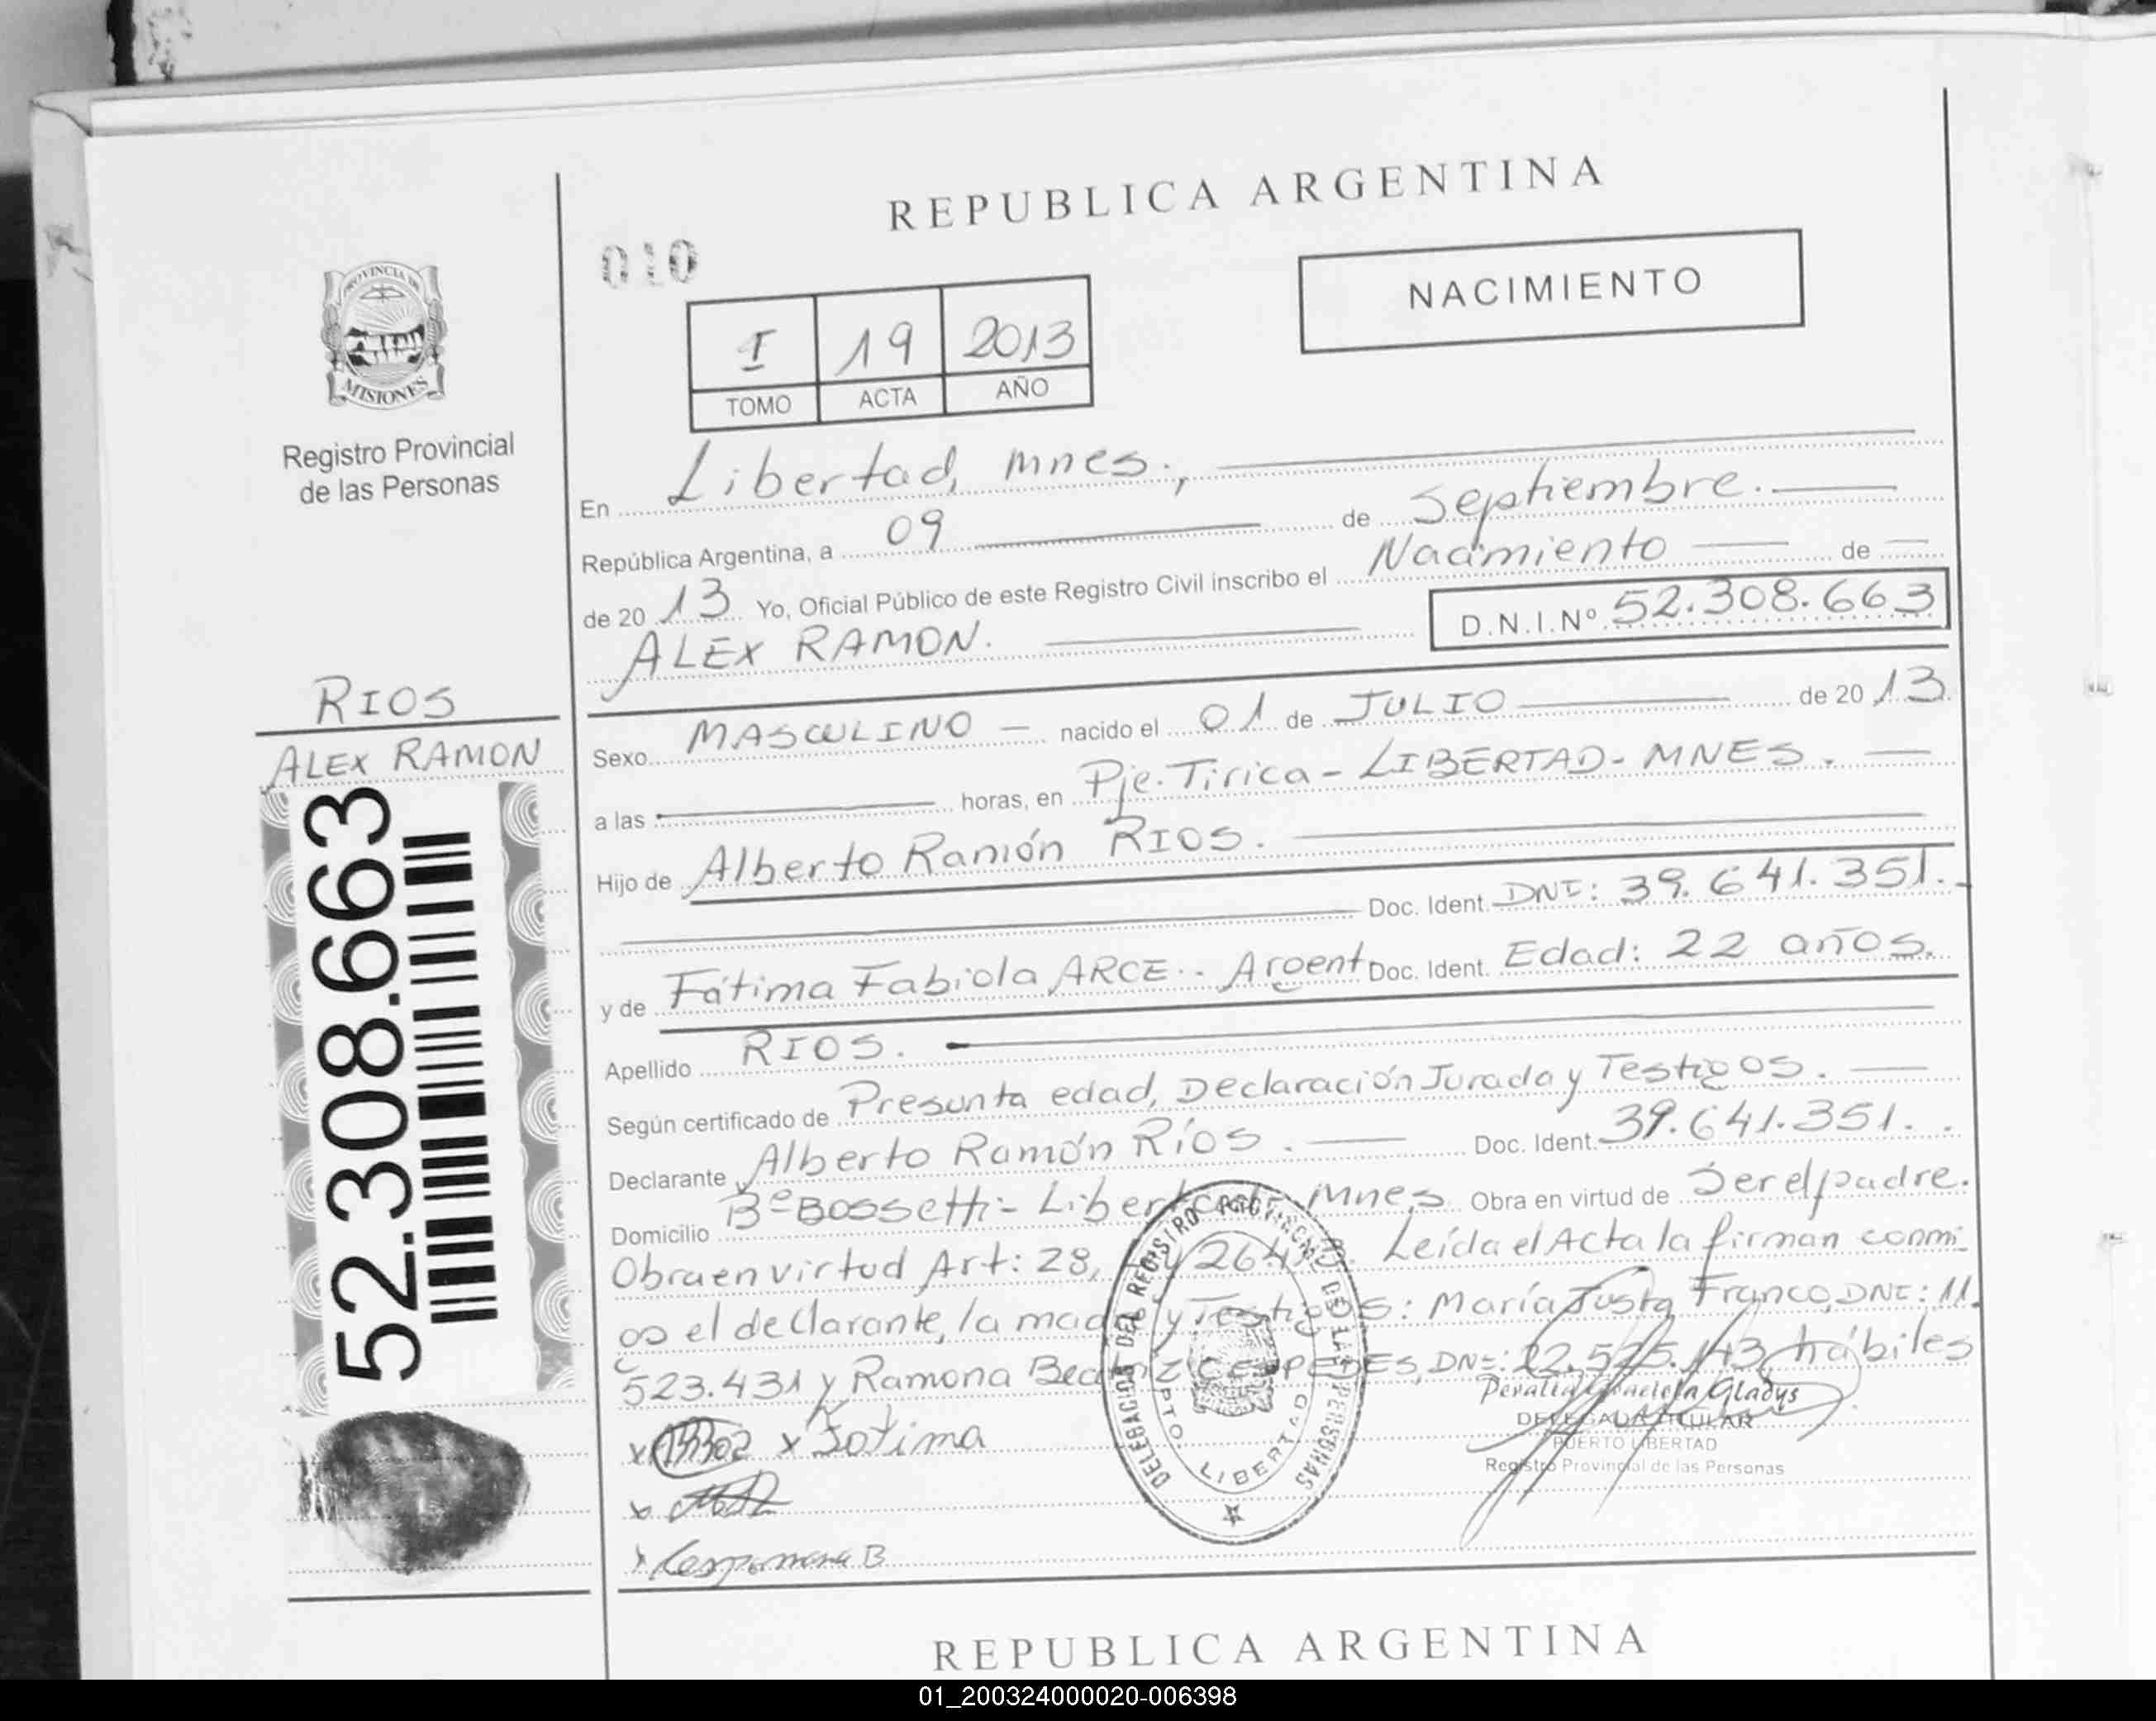 REPUBLICA ARGENTINA
010
NACIMIENTO
PROVINCIA DE
MISIONES
Registro Provincial
de las Personas
I 19 2013
TOMO ACTA AÑO
En Libertad, mnes.,
República Argentina, a 09 de Septiembre.
de 20 13 Yo, Oficial Público de este Registro Civil inscribo el Nacimiento de
ALEX RAMON. D.N.I.Nº 52.308.663
RIOS
ALEX RAMON
52.308.663
Sexo MASCULINO - nacido el 01 de JULIO de 20 13
a las horas, en Pje. Tirica - LIBERTAD - MNES.
Hijo de Alberto Ramón RIOS.
Doc. Ident. DNI: 39.641.351.
y de Fátima Fabiola ARCE.. Argent Doc. Ident. Edad: 22 años.
Apellido RIOS.
Según certificado de Presunta edad, Declaración Jurada y Testigos.
Declarante Alberto Ramón Ríos. Doc. Ident. 39.641.351.
Domicilio Bº Bossetti - Libertad - Mnes Obra en virtud de Ser el padre.
Obra en virtud Art: 28, Ley 26413. Leída el Acta la firman conmi
go el declarante, la madre y Testigos: María Justa Franco, DNI: 11.
523.431 y Ramona Beatriz CESPEDES, DNI: 22.525.143, hábiles
DELEGACION DEL REGISTRO PROVINCIAL DE LAS PERSONAS
PTO. LIBERTAD
Peralta Graciela Gladys
DELEGADA TITULAR
PUERTO LIBERTAD
Registro Provincial de las Personas
x x Fatima
x
x B
REPUBLICA ARGENTINA
01_200324000020-006398